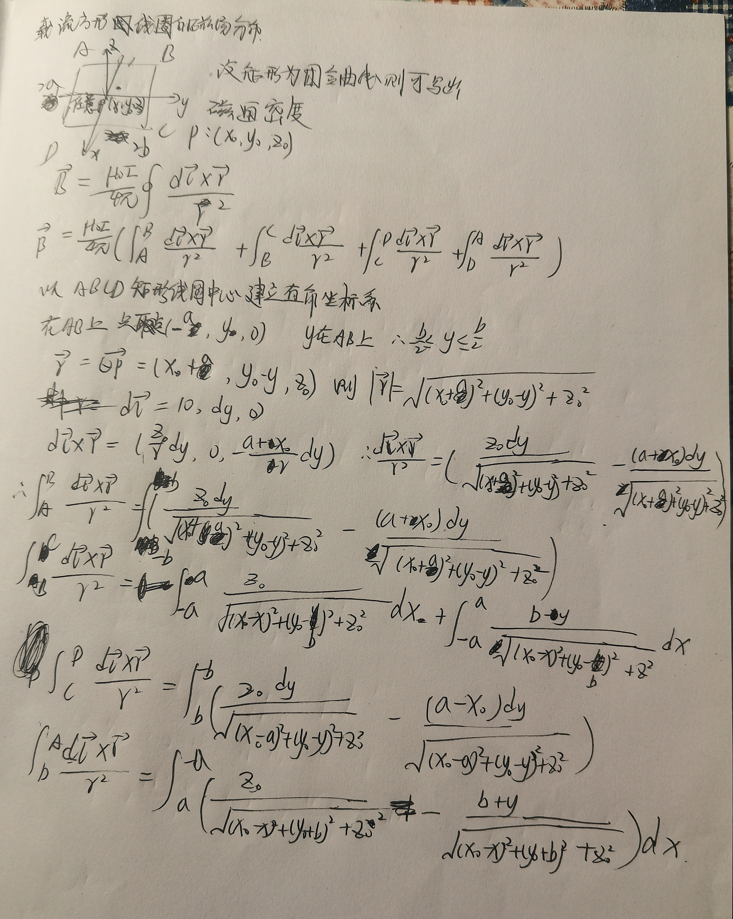 载流方形线圈的磁场分布
A z B
y
C
D x 2b
设矩形为闭合曲线则可写出
磁通密度
P:(x₀,y₀,z₀)
B⃗ = μ₀I/4π ∮ dl⃗×r⃗/r²
B⃗ = μ₀I/4π (∫_A^B dl⃗×r⃗/r² + ∫_B^C dl⃗×r⃗/r² + ∫_C^D dl⃗×r⃗/r² + ∫_D^A dl⃗×r⃗/r²)
以ABCD矩形线圈中心建立直角坐标系
在AB上 (-a, y, 0) y在AB上 ∴ b/2 ≤ y ≤ b/2
r⃗ = QP⃗ = (x₀+a, y₀-y, z₀) 则 |r⃗| = √((x+a)²+(y₀-y)²+z₀²)
dl⃗ = (0, dy, 0)
dl⃗×r⃗ = (z/r dy, 0, -(a+x₀)/r dy) ∴ dl⃗×r⃗/r² = (z₀dy/√((x+a)²+(y₀-y)²+z₀²) - (a+x₀)dy/√((x₀+a)²+(y₀-y)²+z₀²))
∴ ∫_A^B dl⃗×r⃗/r² = ∫_{-b}^{b} (z₀dy/√((x+a)²+(y₀-y)²+z₀²) - (a+x₀)dy/√((x₀+a)²+(y₀-y)²+z₀²))
∫_B^C dl⃗×r⃗/r² = ∫_{-a}^{a} z₀/√((x₀-x)²+(y₀-b)²+z₀²) dx + ∫_{-a}^{a} (b-y)/√((x₀-x)²+(y₀-b)²+z²) dx
∫_C^D dl⃗×r⃗/r² = ∫_b^{-b} (z₀dy/√((x₀-a)²+(y₀-y)²+z₀²) - (a-x₀)dy/√((x₀-a)²+(y₀-y)²+z₀²))
∫_D^A dl⃗×r⃗/r² = ∫_a^{-a} (z₀/√((x₀-x)²+(y₀+b)²+z₀²) - (b+y)/√((x₀-x)²+(y₀+b)²+z₀²)) dx